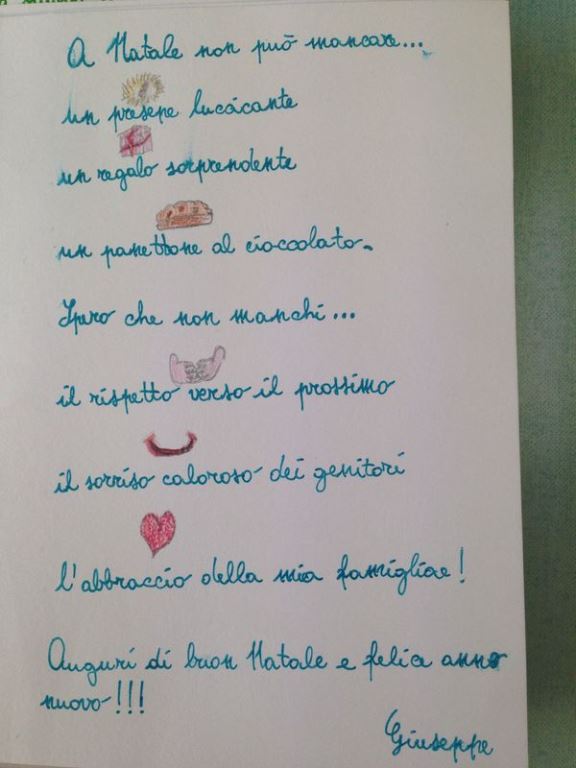 A Natale non può mancare...
un presepe luccicante
un regalo sorprendente
un panettone al cioccolato.
Spero che non manchi...
il rispetto verso il prossimo
il sorriso caloroso dei genitori
l'abbraccio della mia famigliae!
Auguri di buon Natale e felice anno
nuovo!!!
Giuseppe